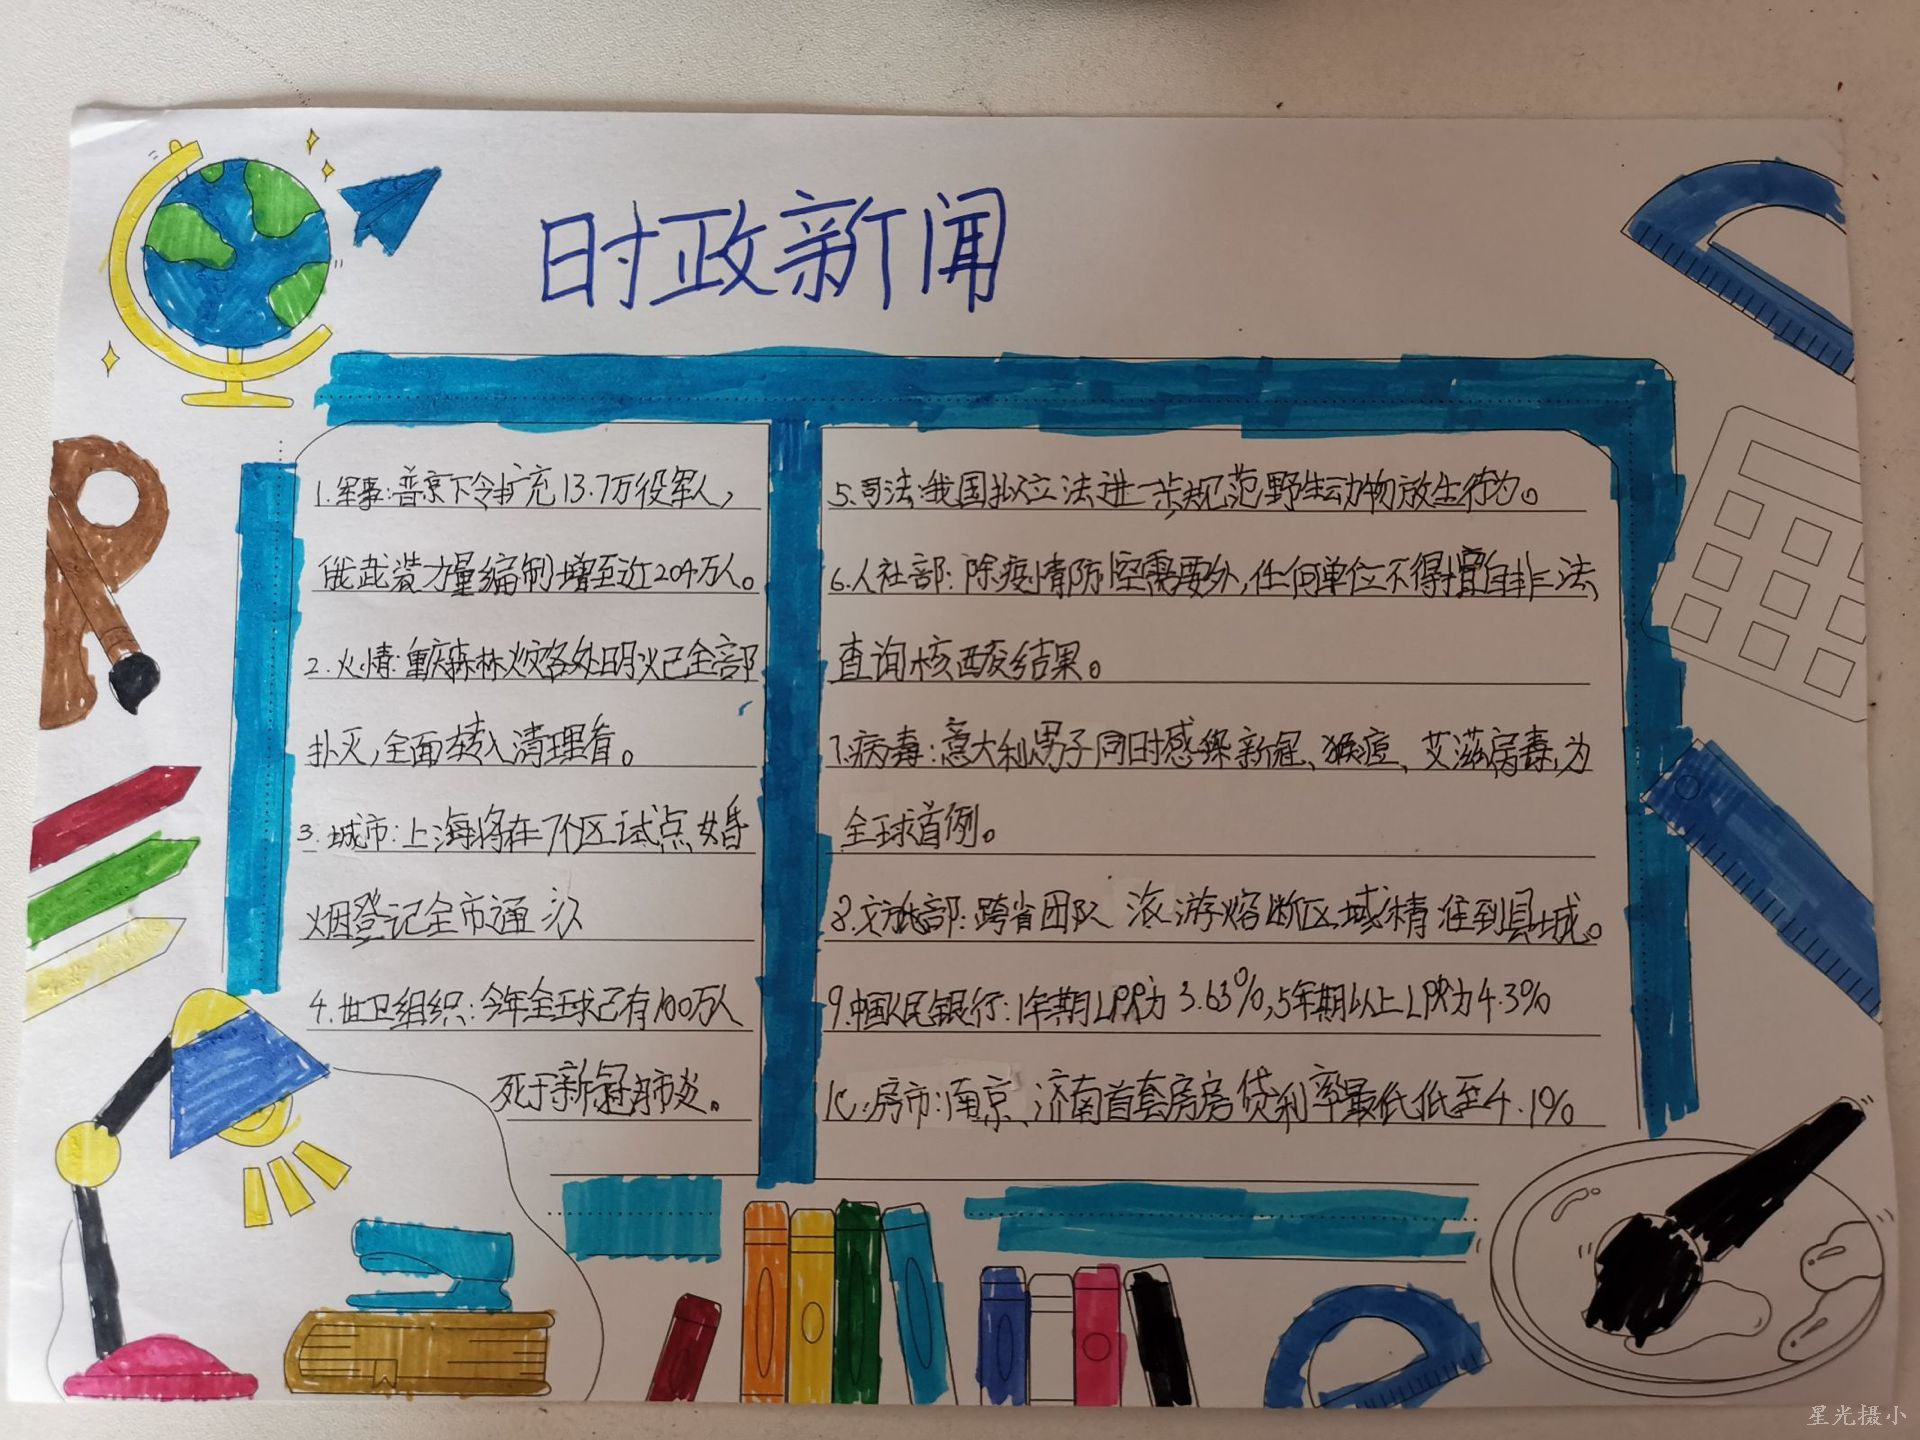 时政新闻
1.军事:普京下令扩充13.7万役军人,
俄武装力量编制增至近204万人。
2.火情:重庆森林火灾各处明火已全部
扑灭,全面转入清理看。
3.城市:上海将在7个区试点婚
姻登记全市通办
4.世卫组织:今年全球已有100万人
死于新冠肺炎。
5.司法:我国拟立法进一步规范野生动物放生行为。
6.人社部:除疫情防控需要外,任何单位不得擅自非法
查询核酸结果。
7.病毒:意大利男子同时感染新冠、猴痘、艾滋病毒,为
全球首例。
8.文旅部:跨省团队 旅游熔断区域精准到县域。
9.中国人民银行:1年期LPR为3.63%,5年期以上LPR为4.3%
10.房市:南京、济南首套房房贷利率最低低至4.1%
星光摄小